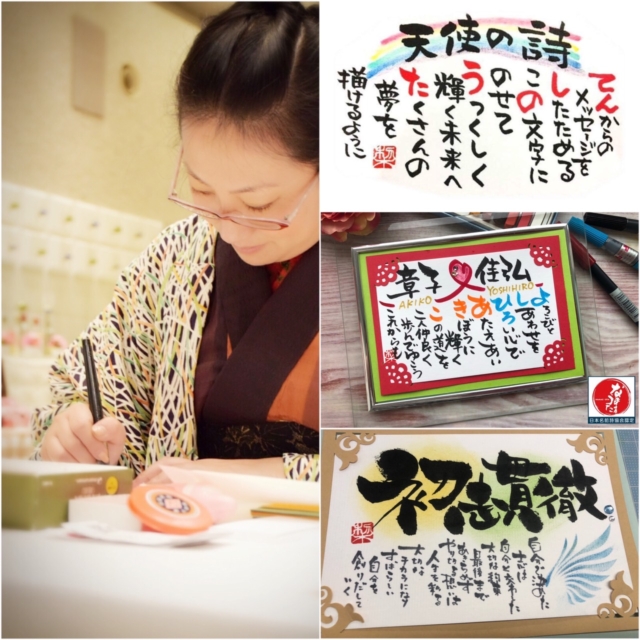 天使の詩
てんからの
メッセージを
したためる
この文字に
のせて
うつくしく
輝く未来へ
たくさんの
夢を
描けるように
章子 佳弘
AKIKO YOSHIHIRO
よろこびと
しあわせを
ひろい心で
あたえあい
きぼうに
輝く
この道を
二人仲良く
歩んでゆこう
これからも
日本名前詩協会認定
初志貫徹
自分で決めた
自分と交わした
大切な約束
最後まで
あきらめず
やりきる想いは
人生を彩る
大切な
チカラになり
すばらしい
自分を
創りだして
いく